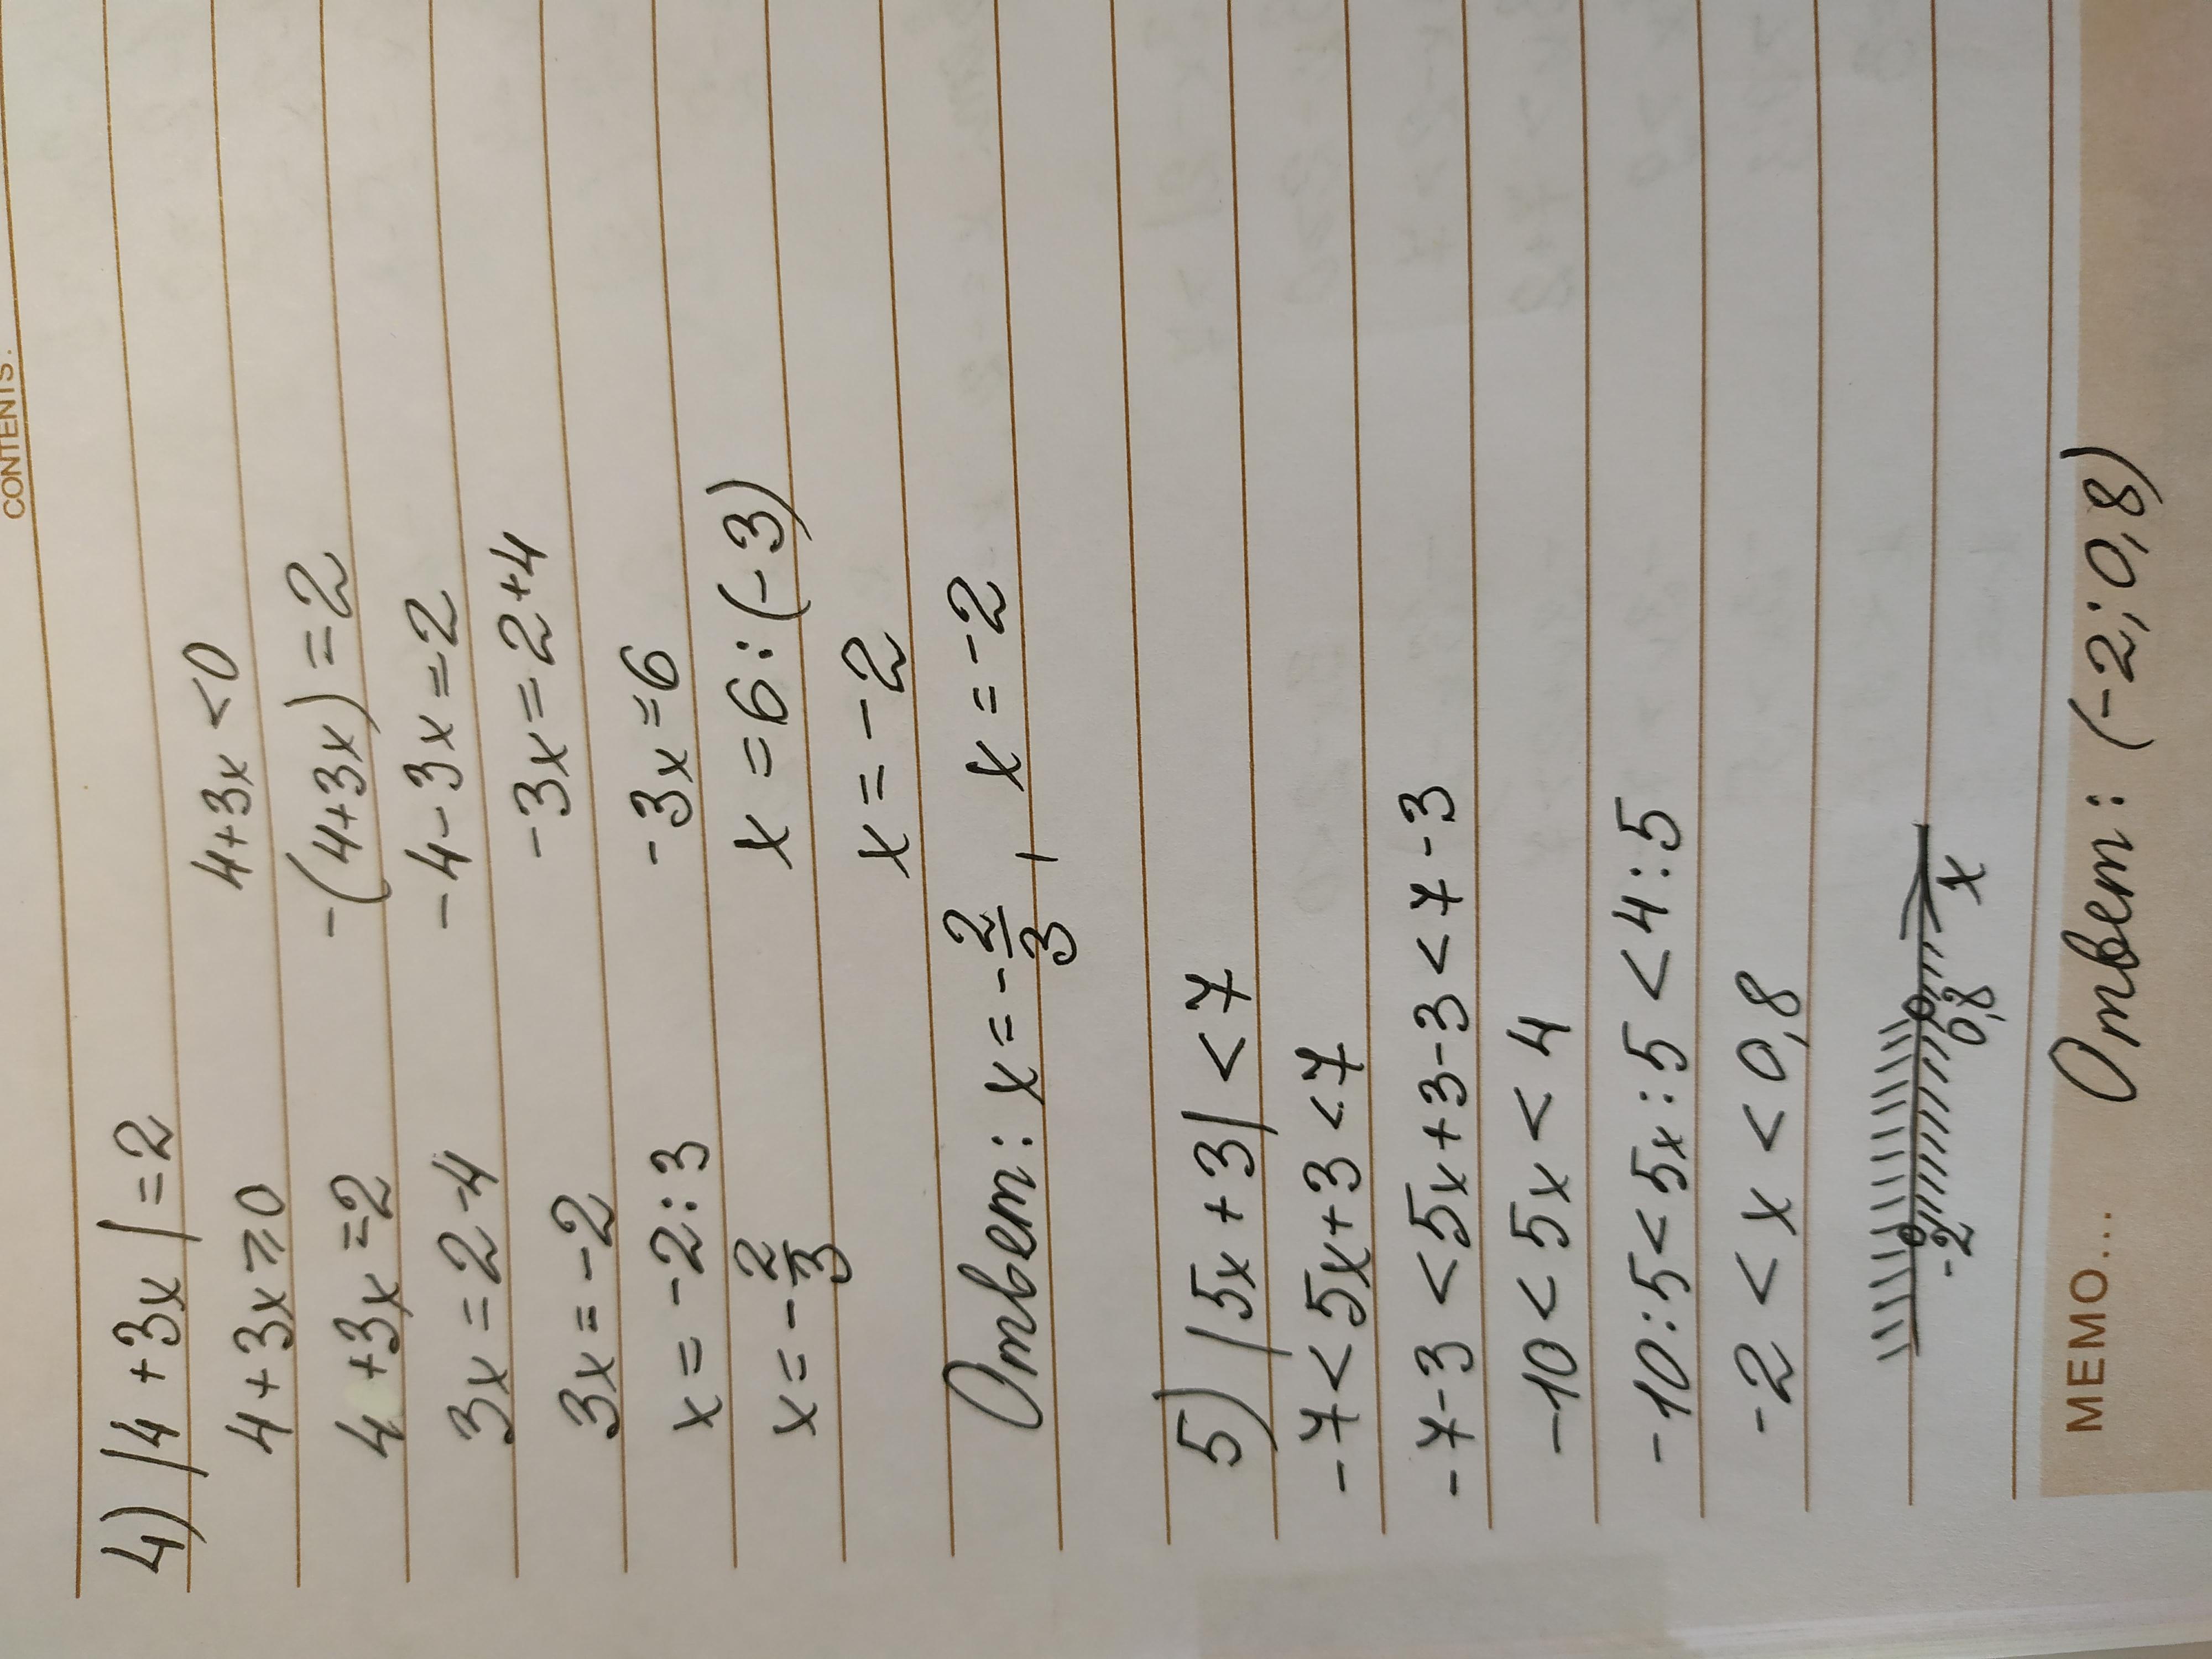 CONTENTS.
4) |4+3x|=2
4+3x≥0 4+3x<0
4+3x=2 -(4+3x)=2
3x=2-4 -4-3x=2
3x=-2 -3x=2+4
x=-2:3 -3x=6
x=-2/3 x=6:(-3)
x=-2
Ответ: x=-2/3, x=-2
5) |5x+3|<7
-7<5x+3<7
-7-3<5x+3-3<7-3
-10<5x<4
-10:5<5x:5<4:5
-2<x<0,8
-2 0,8 x
MEMO... Ответ: (-2;0,8)